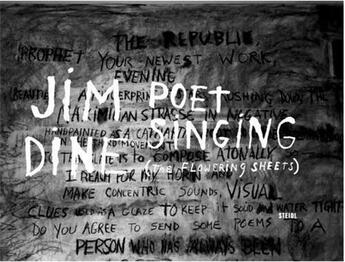 THE REPUBLIC
PROPHET YOUR NEWEST WORK,
EVENING
JIM POET
RUSHING DOWN THE
MAXIMILIAN STRASSE IN NEGATIVE
HANDPAINTED AS A
SINGING
DINE (THE FLOWERING SHEETS)
IS TO COMPOSE ATONALLY
I REACH FOR MY HORN AND
MAKE CONCENTRIC SOUNDS, VISUAL
CLUES USED AS A GLAZE TO KEEP IT SOLID AND WATER TIGHT
STEIDL
DO YOU AGREE TO SEND SOME POEMS TO A
PERSON WHO HAS ALWAYS BEEN